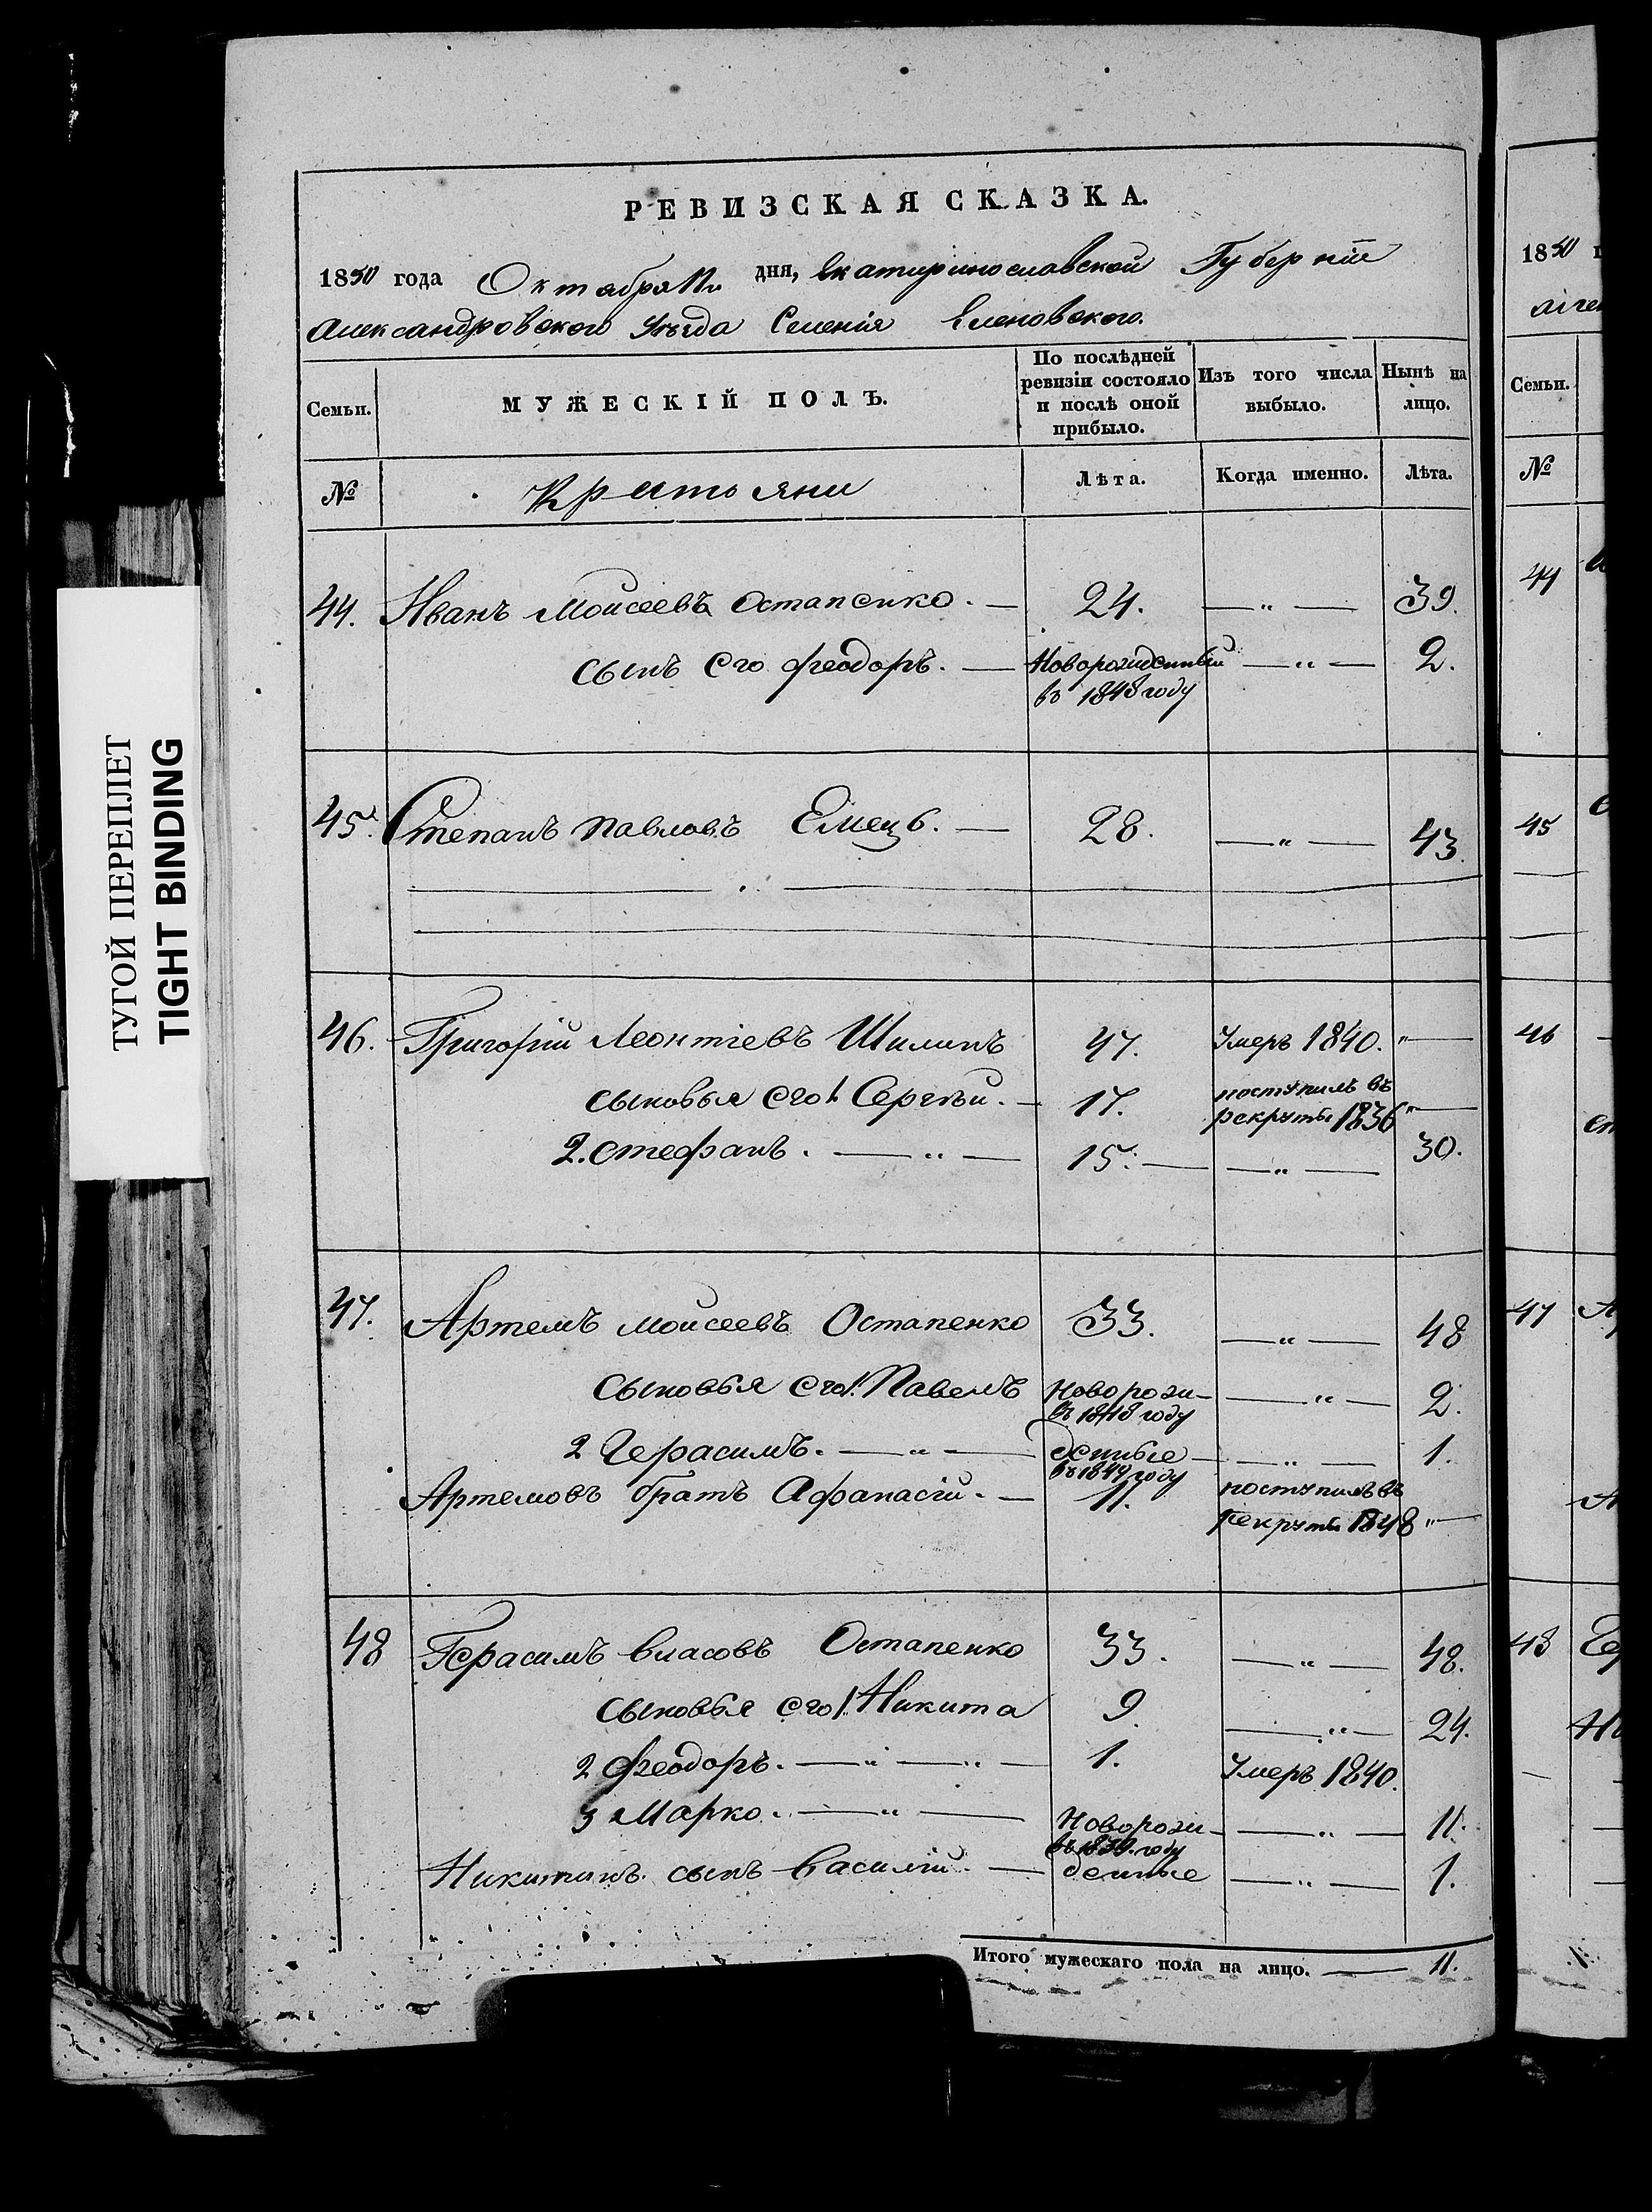 ТУГОЙ ПЕРЕПЛЕТ
TIGHT BINDING
РЕВИЗСКАЯ СКАЗКА.
1850 года Октября дня, Екатиринославской Губерніи
Александровского Уѣзда Селенія Еленовского.
Семьи. МУЖЕСКІЙ ПОЛЪ. По послѣдней ревизіи состояло и послѣ оной прибыло. Изъ того числа выбыло. Нынѣ на лицо.
№ Крестьяни Лѣта. Когда именно. Лѣта.
44. Иванъ Моисеевъ Остапенко. — 24. — " — 39.
сынъ его Феодоръ. — Новорожденный — " — 2.
въ 1848 году
45. Степанъ Павловъ Емецъ. — 28. — " — 43.
46. Григорій Леонтіевъ Шилинъ 47. Умеръ 1840. " —
сыновья его 1. Сергѣй. — 17. поступилъ въ
рекруты 1836 " —
2. Стефанъ. — " — 15. — — " — 30.
47. Артемъ Моисеевъ Остапенко 33. — " — 48
Сыновья его 1. Павелъ Новорож- — " — 2.
въ 1848 году
2 Герасимъ. — " — денные — " — 1.
въ 1849 году
Артемовъ братъ Афанасій. — 11. поступилъ въ
рекруты 1848 " —
48 Герасимъ Власовъ Остапенко 33. — " — 48.
сыновья его 1. Никита 9 — " — 24.
2 Феодоръ. — " — " — 1. Умеръ 1840.
3 Марко. — " — Новорож- — " — 11.
въ 1839 году
Никитинъ сынъ Василій. — денные — " — 1.
Итого мужескаго пола на лицо. — 11.
1850
Семьи.
№
44
45
46
47
48